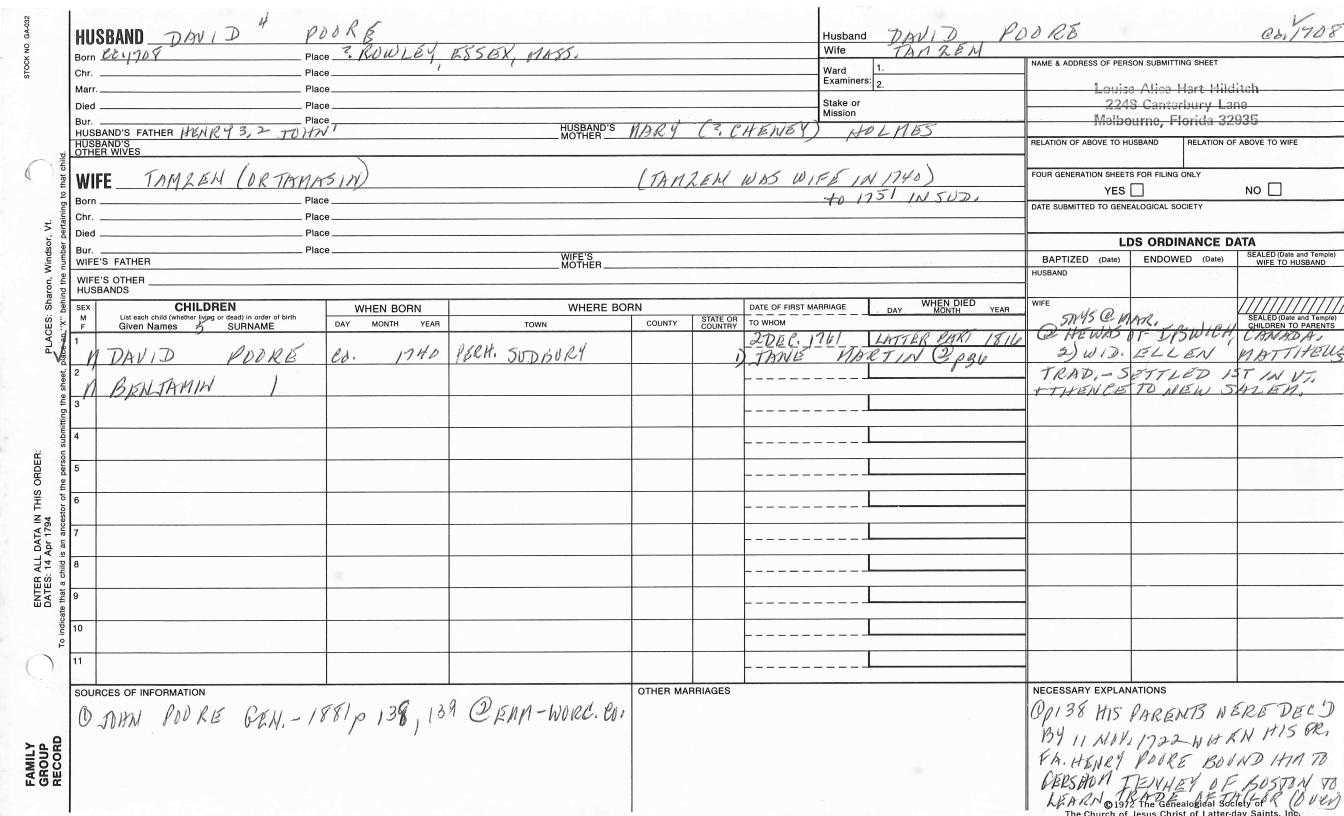 STOCK NO. GA-032
HUSBAND DAVID 4 POORE
Born Ca 1708 Place ? ROWLEY, ESSEX, MASS.
Chr. Place
Marr. Place
Died Place
Bur. Place
HUSBAND'S FATHER HENRY 3, 2 JOHN 1 HUSBAND'S MOTHER MARY (? CHENEY) HOLMES
HUSBAND'S OTHER WIVES
Husband DAVID POORE Ca. 1708
Wife TAMZEN
Ward Examiners: 1.
2.
Stake or Mission
NAME & ADDRESS OF PERSON SUBMITTING SHEET
Louise Alice Hart Hilditch
2248 Canterbury Lane
Melbourne, Florida 32935
RELATION OF ABOVE TO HUSBAND RELATION OF ABOVE TO WIFE
FOUR GENERATION SHEETS FOR FILING ONLY
YES NO
DATE SUBMITTED TO GENEALOGICAL SOCIETY
WIFE TAMZEN (OR TAMASIN) (TAMZEN WAS WIFE IN 1740)
to 1751 IN SUD.
Born Place
Chr. Place
Died Place
Bur. Place
WIFE'S FATHER WIFE'S MOTHER
WIFE'S OTHER HUSBANDS
LDS ORDINANCE DATA
BAPTIZED (Date) ENDOWED (Date) SEALED (Date and Temple) WIFE TO HUSBAND
HUSBAND
WIFE
SEALED (Date and Temple) CHILDREN TO PARENTS
SEX M F
CHILDREN
List each child (whether living or dead) in order of birth
Given Names 5 SURNAME
WHEN BORN
DAY MONTH YEAR
WHERE BORN
TOWN COUNTY STATE OR COUNTRY
DATE OF FIRST MARRIAGE
TO WHOM
WHEN DIED
DAY MONTH YEAR
SAYS @ MAR.
1 2 DEC. 1761 LATTER PART 1816 @ HE WAS OF IPSWICH, CANADA.
M DAVID POORE Ca. 1740 PERH. SUDBURY 1) JANE MARTIN ② p36 2) WID. ELLEN MATTHEWS
2 TRAD. - SETTLED 1ST IN VT.
M BENJAMIN + THENCE TO NEW SALEM.
3
4
5
6
7
8
9
10
11
SOURCES OF INFORMATION
① JOHN POORE GEN. - 1881 p 138, 139 ② EAM - WORC. CO.
OTHER MARRIAGES
NECESSARY EXPLANATIONS
① p138 HIS PARENTS WERE DEC'D
BY 11 NOV. 1722 WHEN HIS GR.
FA. HENRY POORE BOUND HIM TO
GERSHOM TENNEY OF BOSTON TO
LEARN TRADE OF TAILOR (Over)
©1972 The Genealogical Society of
The Church of Jesus Christ of Latter-day Saints, Inc.
FAMILY GROUP RECORD
ENTER ALL DATA IN THIS ORDER:
DATES: 14 Apr 1794
PLACES: Sharon, Windsor, Vt.
To indicate that a child is an ancestor of the person submitting the sheet, place an "X" behind the number pertaining to that child.